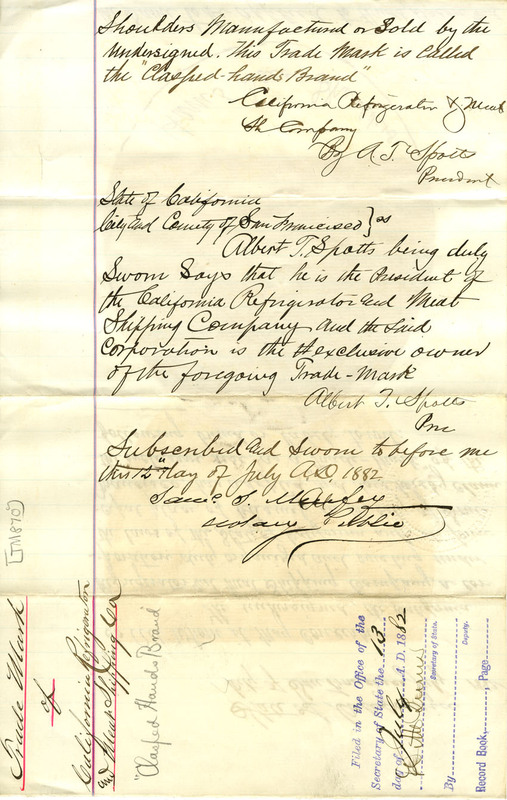 Shoulders Manufactured or Sold by the
undersigned. This Trade Mark is called
the "Clasped-hands Brand"
California Refrigerator & Meat
Sh Company
By A. T. Spotts
President
State of California
City and County of San Francisco } ss
Albert T. Spotts being duly
Sworn Says that he is the President of
the California Refrigerator and Meat
Shipping Company and the Said
Corporation is the exclusive owner
of the foregoing Trade-Mark
Albert T. Spotts
Pre
Subscribed and Sworn to before me
this 12th day of July A.D. 1882
Notary Public
[TM870]
Trade Mark
of
California Refrigerator
and Meat Shipping Co
"Clasped Hands Brand
Filed in the Office of the
Secretary of State the 13
day of July A. D. 1882
Secretary of State.
By Deputy.
Record Book, , Page